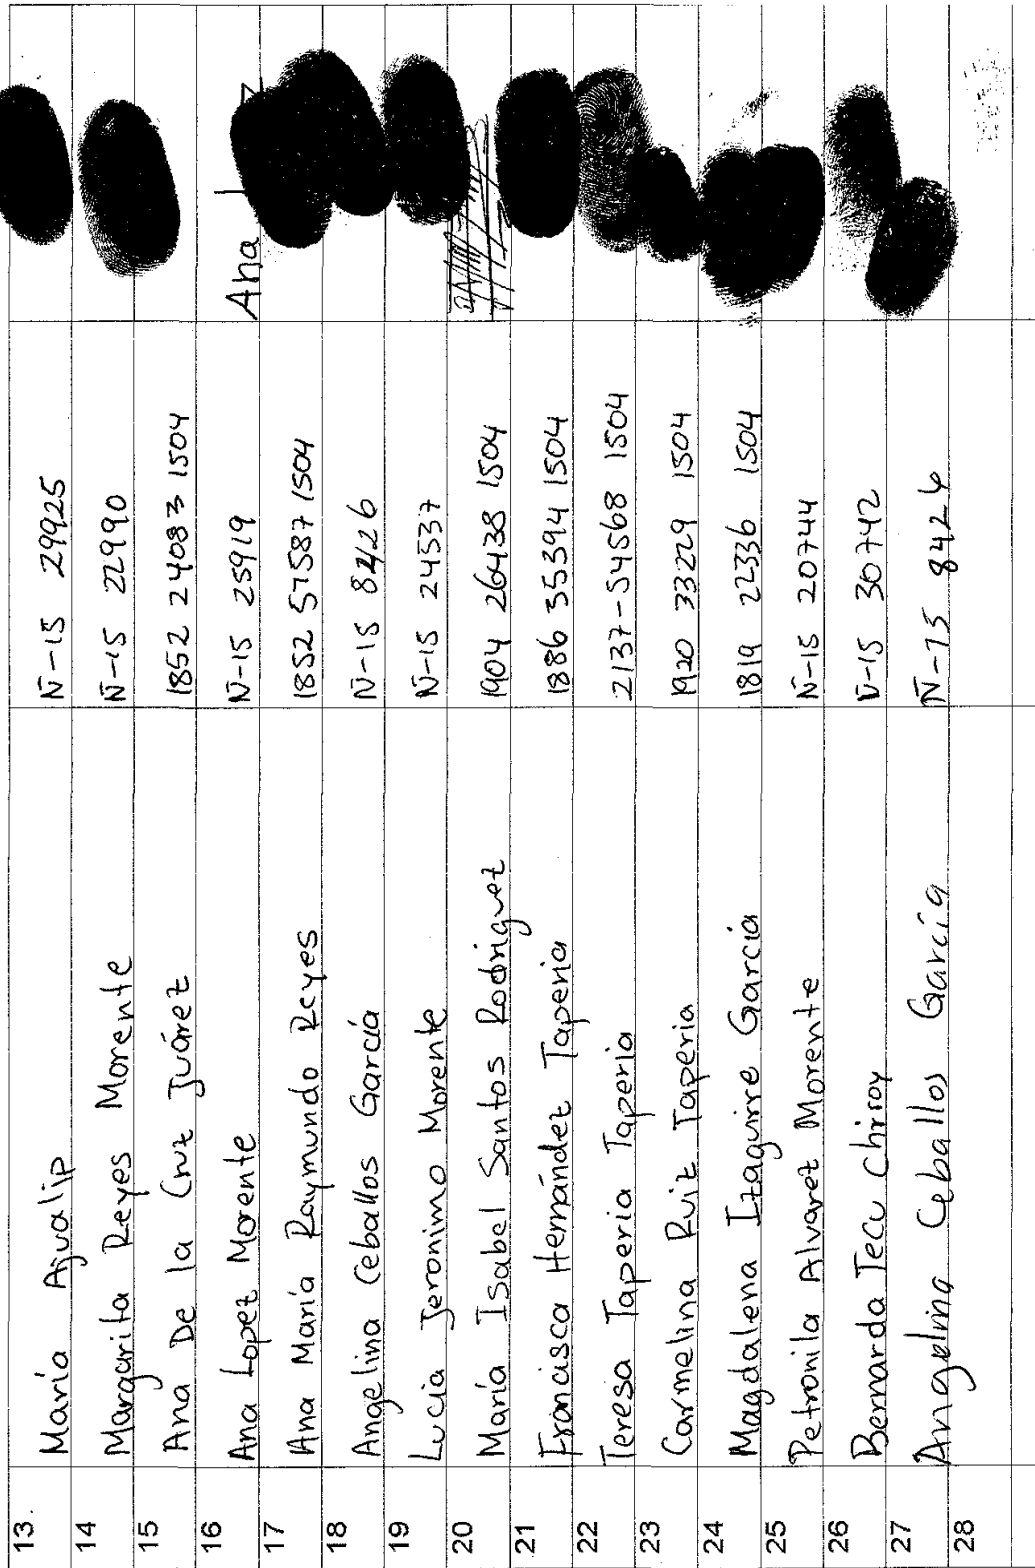 13. María Ajualip N-15 29925
14 Margarita Reyes Morente N-15 22990
15 Ana De la Cruz Juárez 1852 24083 1504
16 Ana Lopez Morente N-15 25919 Ana
17 Ana María Raymundo Reyes 1852 57587 1504
18 Angelina Ceballos García N-15 8426
19 Lucia Jeronimo Morente N-15 24537
20 María Isabel Santos Rodriguez 1904 26438 1504
21 Francisca Hernández Taperia 1886 35394 1504
22 Teresa Taperia Taperia 2137-54568 1504
23 Carmelina Ruiz Taperia 1920 33229 1504
24 Magdalena Izaguirre García 1819 22336 1504
25 Petronila Alvarez Morente N-15 20744
26 Bernarda Tecu Chiroy V-15 30742
27 Angelina Ceballos García N-15 8426
28